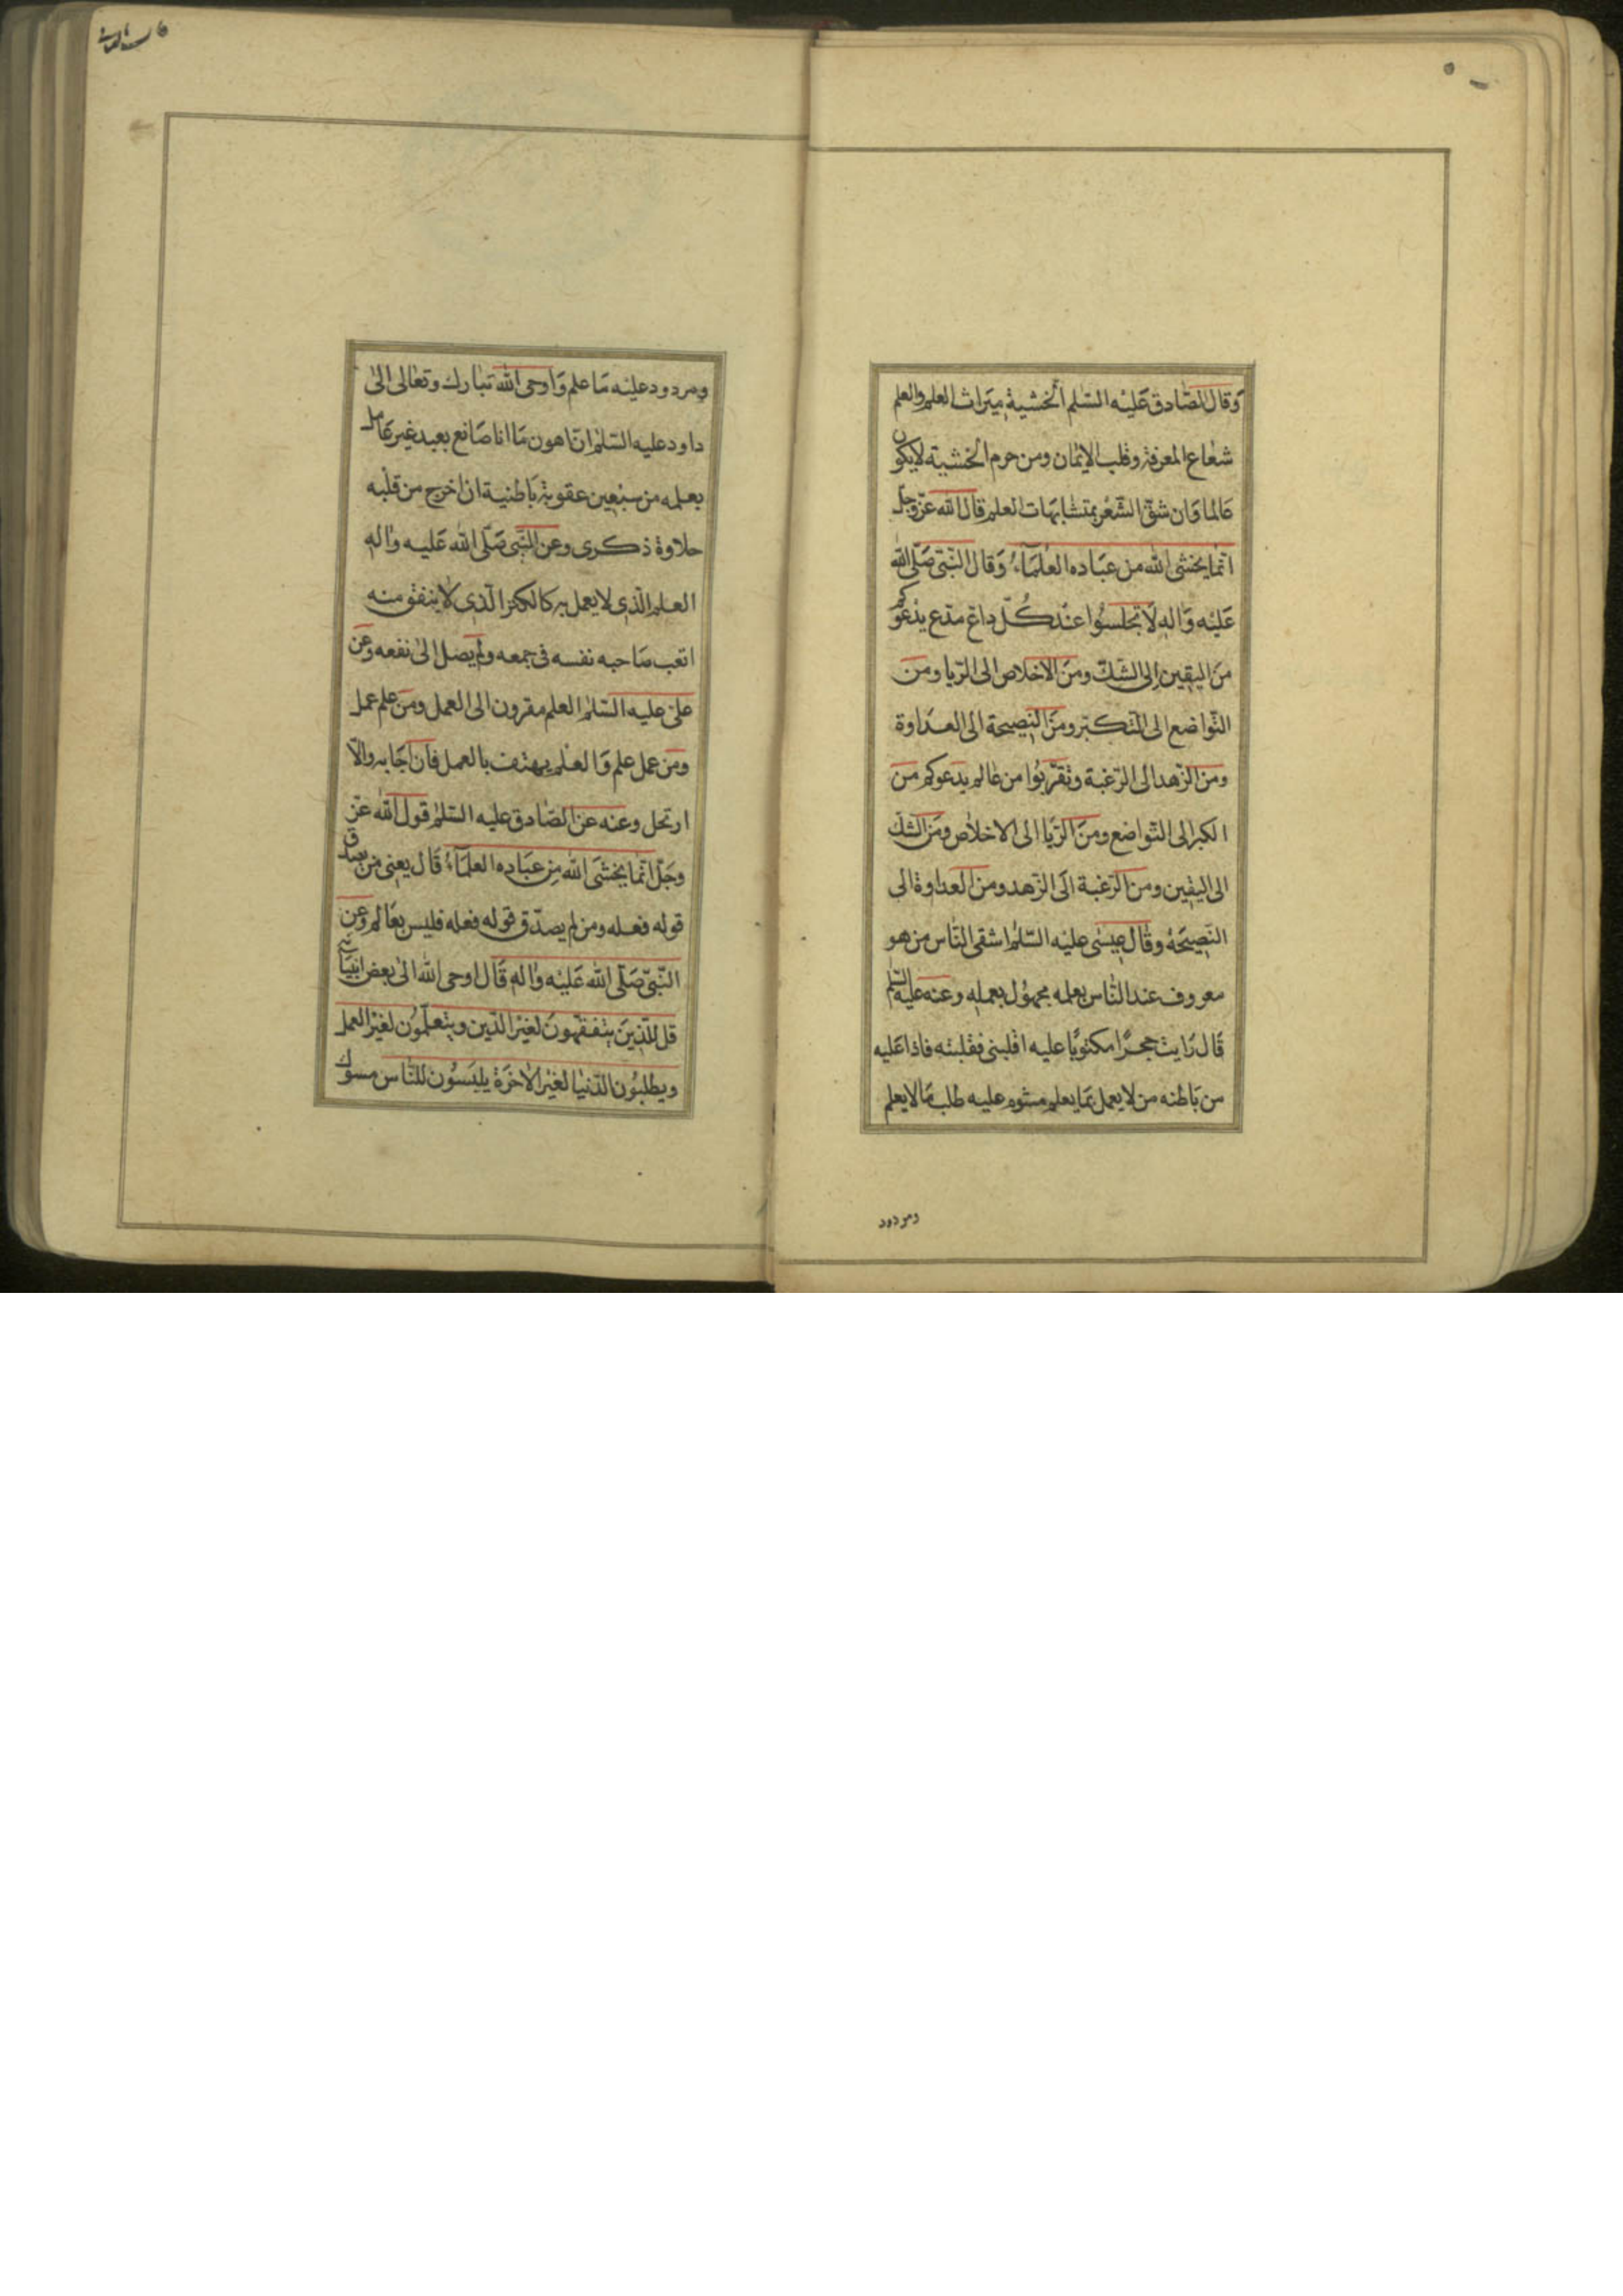 وَقال الصّادق عَليْه السّلم الخشية ميَراث العلم والعلم
شعاع المعرفة وقلب الايمان ومن حرم الخشية لايكون
عَالما وَان شقّ الشّعْر بمتشابهات العلم قال الله عزّوجلّ
انّما يخشى الله من عبَاده العُلمَآءُ وَقال النّبّى صَلّى الله
عَليْه وَاله لَا تجلسُوا عنْد كُلّ داعٍ مدّع يدْعوكم
منَ اليقين الى الشّكّ ومنَ الاخلاص الى الرّيا ومن
التّواضع الى التّكبّر ومنَ النّصيحة الى العداوة
ومن الزّهد الى الرّغبة وتقرّبُوا من عَالم يدعوكم من
الكبر الى التّواضع ومنَ الرّيا الى الاخلاص ومنَ الشكّ
الى اليقين ومن الرّغبة الَى الزّهد ومن العداوة الى
النّصيحَة وقال عيسٰى عليْه السّلم اشقى النّاس من هو
معروف عند النّاس بعلمه مجهوُل بعمله وعنه عليْه السّلم
قَال رَايت حجرًا مكتوبًا عليه اقلبنى فقلبته فاذا عَليه
من بَاطنه من لا يعمل بمَا يعلم مشوم عليه طلب مَا لا يعلم
ومردود
ومردود عليْه مَا علم وَاوحى الله تبٰارك وتعٰالى الىٰ
داود عليه السّلم انّ اهون مَا انا صَانع بعبد غير عَامل
بعلمه من سبْعين عقوبة بَاطنية ان اخرج من قلْبه
حلاوة ذكرى وعن النّبّى صَلّى الله عَليه واٰله
العلم الّذى لا يعمل به كالكنز الّذى لا ينفق منه
اتعب صَاحبه نفسه فى جمعه ولم يصل الىٰ نفعه وعن
علىّ عليه السّلم العلم مقرون الى العمل ومَن علم عمل
ومَن عمل علم وَالعلم يهتف بالعمل فان اجَابه والّا
ارتحل وعنه عن الصّادق عليه السّلم قول الله عزّ
وجَلّ انّما يخشَى الله من عبَاده العلمَآءُ قَال يعنى من يصدق
قوله فعله ومن لم يصدّق قوله فعله فليس بعَالم وعن
النّبّى صَلّى الله عَليْه واٰله قَال اوحى الله الىٰ بعض انبيَائه
قل للّذينَ يتفقّهونَ لغيْر الدّين ويتعلّموُن لغيْر العمل
ويطلبُون الدّنيْا لغيْر الاخرَة يلبَسُون للنّاس مسوك